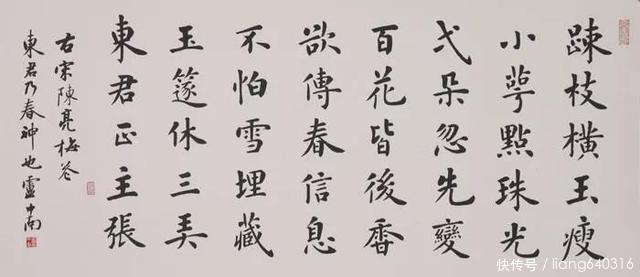 踈枝橫玉瘦
小萼點珠光
弌朵忽先變
百花皆後香
欲傳春信息
不怕雪埋藏
玉篴休三弄
東君正主張
右宋陳亮梅花
東君乃春神也盧中南
快传号/liang640316